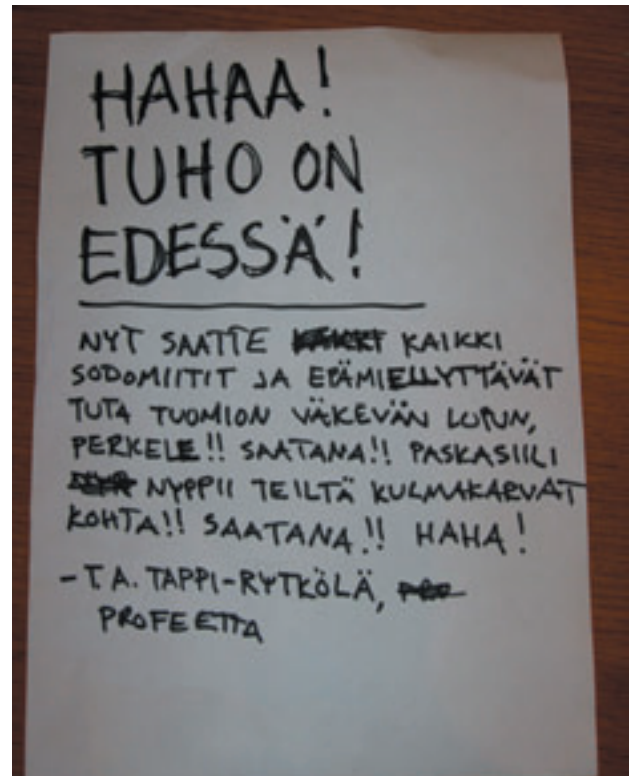 HAHAA!
TUHO ON
EDESSÄ!
NYT SAATTE KAIKKI
SODOMIITIT JA EPÄMIELLYTTÄVÄT
TUTA TUOMION VÄKEVÄN LOPUN,
PERKELE!! SAATANA!! PASKASIILI
NYPPII TEILTÄ KULMAKARVAT
KOHTA!! SAATANA!! HAHA!
-T.A. TAPPI-RYTKÖLÄ,
PROFEETTA